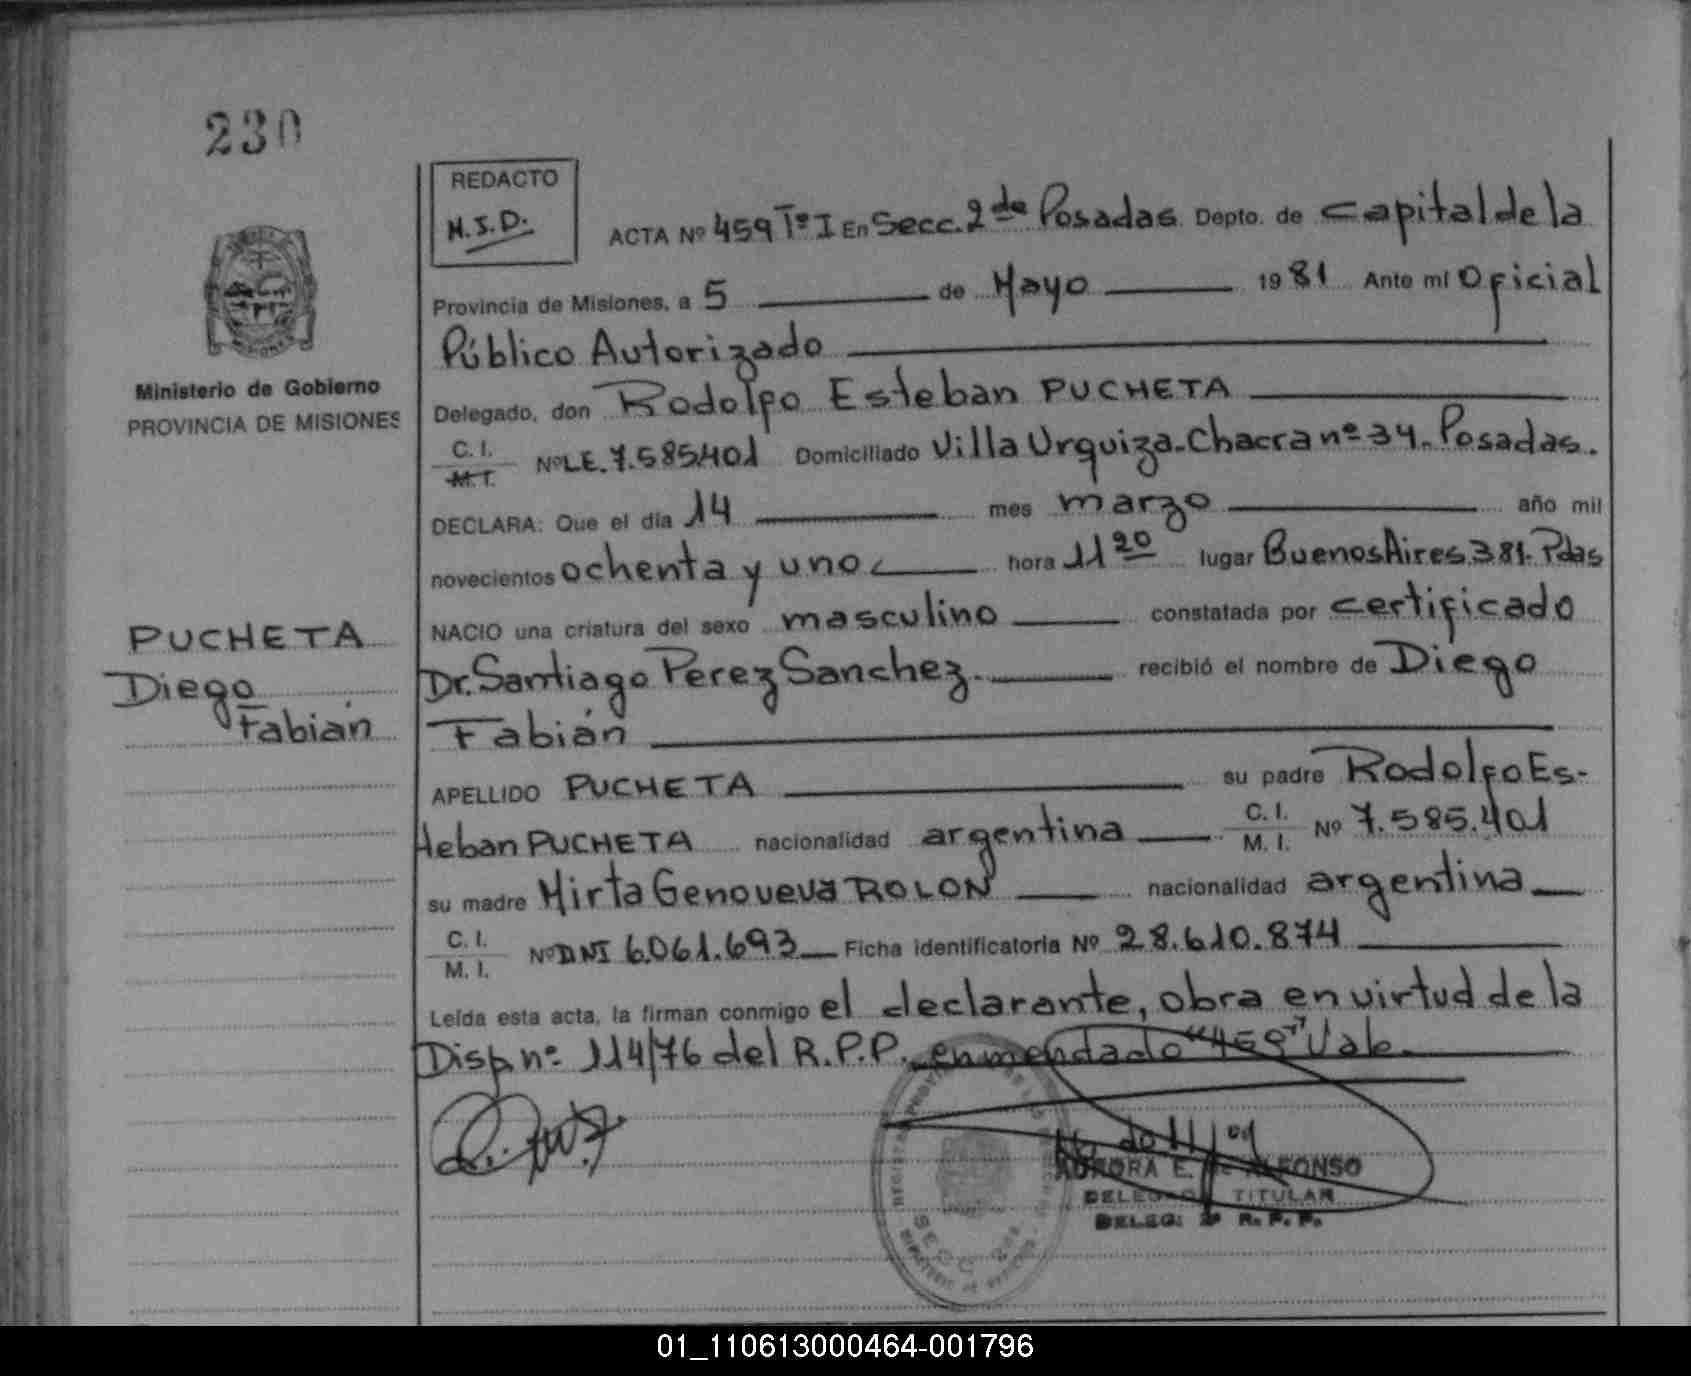 230
REDACTO
N.S.D.
ACTA Nº 459 Tº I En Secc. 2da Posadas. Depto. de Capital de la
Provincia de Misiones, a 5 de Mayo 1981 Ante mi Oficial
Público Autorizado
Ministerio de Gobierno
PROVINCIA DE MISIONES
Delegado, don Rodolfo Esteban PUCHETA
C. I.
M. I. Nº LE. 7.585.401 Domiciliado Villa Urquiza-Chacra nº 34. Posadas.
DECLARA: Que el día 14 mes marzo año mil
novecientos ochenta y uno hora 11 20 lugar Buenos Aires 381. Pdas
NACIO una criatura del sexo masculino constatada por certificado
Dr. Santiago Perez Sanchez. recibió el nombre de Diego
Fabián
PUCHETA
Diego
Fabián
APELLIDO PUCHETA su padre Rodolfo Es-
teban PUCHETA nacionalidad argentina C. I.
M. I. Nº 7.585.401
su madre Mirta Genoveva ROLON nacionalidad argentina
C. I.
M. I. Nº DNI 6.061.693 Ficha identificatoria Nº 28.610.874
Leída esta acta, la firman conmigo el declarante, obra en virtud de la
Disp. nº 114/76 del R.P.P. enmendado "459" Vale.
AURORA E. de ALFONSO
DELEGADA TITULAR
DELEG: 2ª R. P. P.
SECC. 2da
01_110613000464-001796